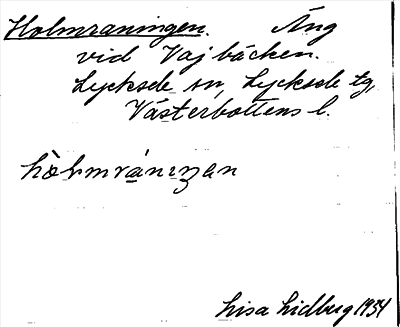 Holmraningen. Äng
vid Vajbäcken.
Lycksele sn, Lycksele tg,
Västerbottens l.
hòlmrániŋan
Lisa Lidberg 1934